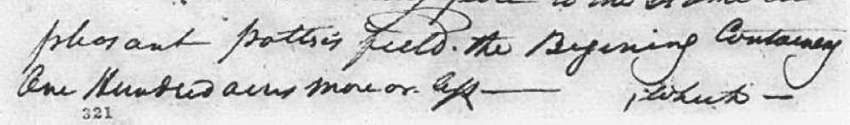 pleasant pottsis field. the Begining Containing
One Hundred acres more or less — which —
321